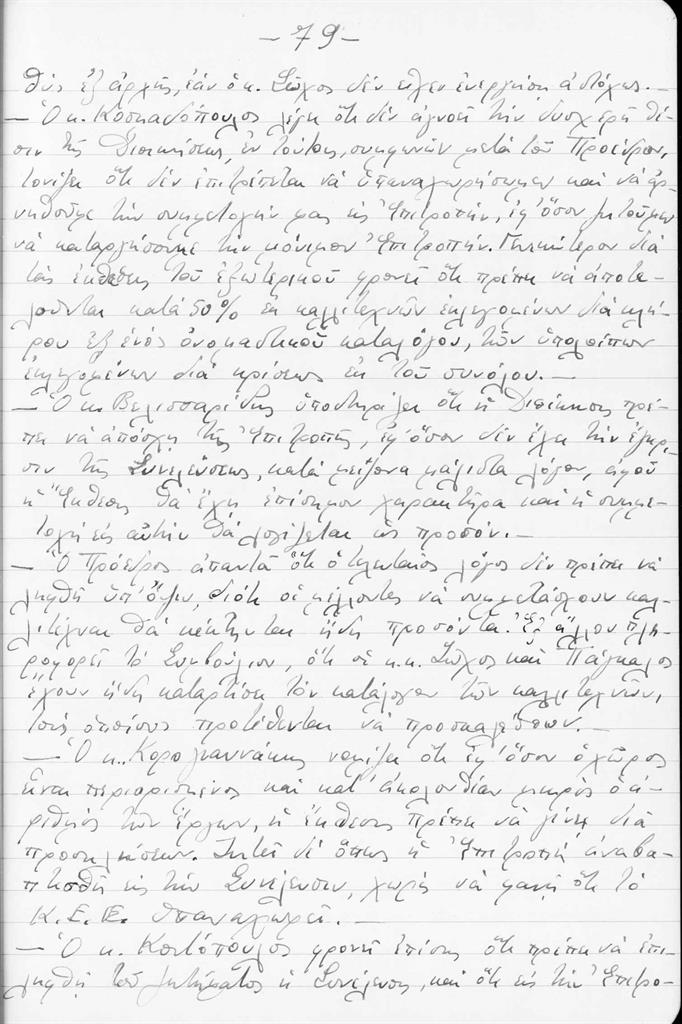 - 79 -
θύς ἐξ ἀρχῆς, ἐάν ὁ κ. Σῶχος δέν εἶχεν ἐνεργήσῃ ἀστόχως. —
— Ὁ κ. Κοσκαδόπουλος λέγει ὅτι δέν ἀγνοεῖ τήν δυσχερῆ θέ-
σιν τῆς Διοικήσεως, ἐν τούτοις, συμφωνῶν μετά τοῦ Προέδρου,
τονίζει ὅτι δέν ἐπιτρέπεται νά ὑπαναχωρήσωμεν καί νά ἀρ-
νηθοῦμε τήν συμμετοχήν μας εἰς Ἐπιτροπήν, ἐφ' ὅσον ζητοῦμεν
νά καταργήσουμε τήν μόνιμον Ἐπιτροπήν. Γενικώτερον διά
τάς ἐκθέσεις τοῦ ἐξωτερικοῦ φρονεῖ ὅτι πρέπει νά ἀποτε-
λοῦνται κατά 50% ἐκ καλλιτεχνῶν ἐκλεγομένων διά κλή-
ρου ἐξ ἑνός ὀνομαστικοῦ καταλόγου, τῶν ὑπολοίπων
ἐκλεγομένων διά κρίσεως ἐκ τοῦ συνόλου. —
— Ὁ κ. Βελισσαρίδης ὑποστηρίζει ὅτι ἡ Διοίκησις πρέ-
πει νά ἀπόσχῃ τῆς Ἐπιτροπῆς, ἐφ' ὅσον δέν ἔχει τήν ἔγκρι-
σιν τῆς Συνελεύσεως, κατά μείζονα μάλιστα λόγον, ἀφοῦ
ἡ Ἔκθεσις θά ἔχῃ ἐπίσημον χαρακτῆρα καί ἡ συμμε-
τοχή εἰς αὐτήν θά λογίζεται ὡς προσόν. —
— Ὁ Πρόεδρος ἀπαντᾶ ὅτι ὁ τελευταῖος λόγος δέν πρέπει νά
ληφθῇ ὑπ' ὄψιν, διότι οἱ μέλλοντες νά συμμετάσχουν καλ-
λιτέχναι θά κέκτηνται ἤδη προσόντα. Ἐξ ἄλλου πλη-
ροφορεῖ τό Συμβούλιον, ὅτι οἱ κ.κ. Σῶχος καί Πάγκαλος
ἔχουν ἤδη καταρτίσῃ τόν κατάλογον τῶν καλλιτεχνῶν,
τούς ὁποίους προτίθενται νά προσκαλέσουν. —
— Ὁ κ. Καρογιαννάκης νομίζει ὅτι ἐφ' ὅσον ὁ χῶρος
εἶναι περιορισμένος καί κατ' ἀκολουθίαν μικρός ὁ ἀ-
ριθμός τῶν ἔργων, ἡ ἔκθεσις πρέπει νά γίνῃ διά
προσκλήσεων. Ζητεῖ δέ ὅπως ἡ Ἐπιτροπή ἀναβα-
πτισθῇ εἰς τήν Συνέλευσιν, χωρίς νά φανῇ ὅτι τό
Κ.Ε.Ε. ὑπαναχωρεῖ. —
— Ὁ κ. Κωτόπουλος φρονεῖ ἐπίσης ὅτι πρέπει νά ἐπι-
ληφθῇ τοῦ ζητήματος ἡ Συνέλευσις, καί ὅτι εἰς τήν Ἐπιτρο-